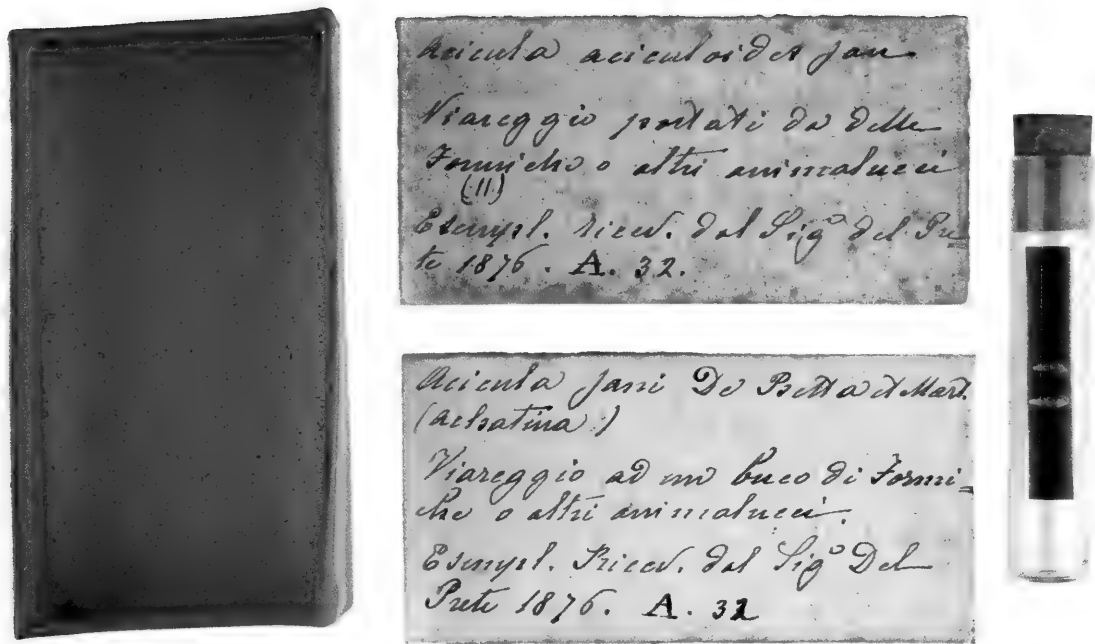 Acicula aciculoides Jan
Viareggio portati da delle
Formiche o altri animalucci
(11)
Esempl. ricev. dal Sig.o del Pre=
te 1876. A. 32.
Acicula Jani De Betta et Mart.
(Achatina)
Viareggio ad un buco di Formi=
che o altri animalucci.
Esempl. Ricev. dal Sig.o Del
Prete 1876. A. 32